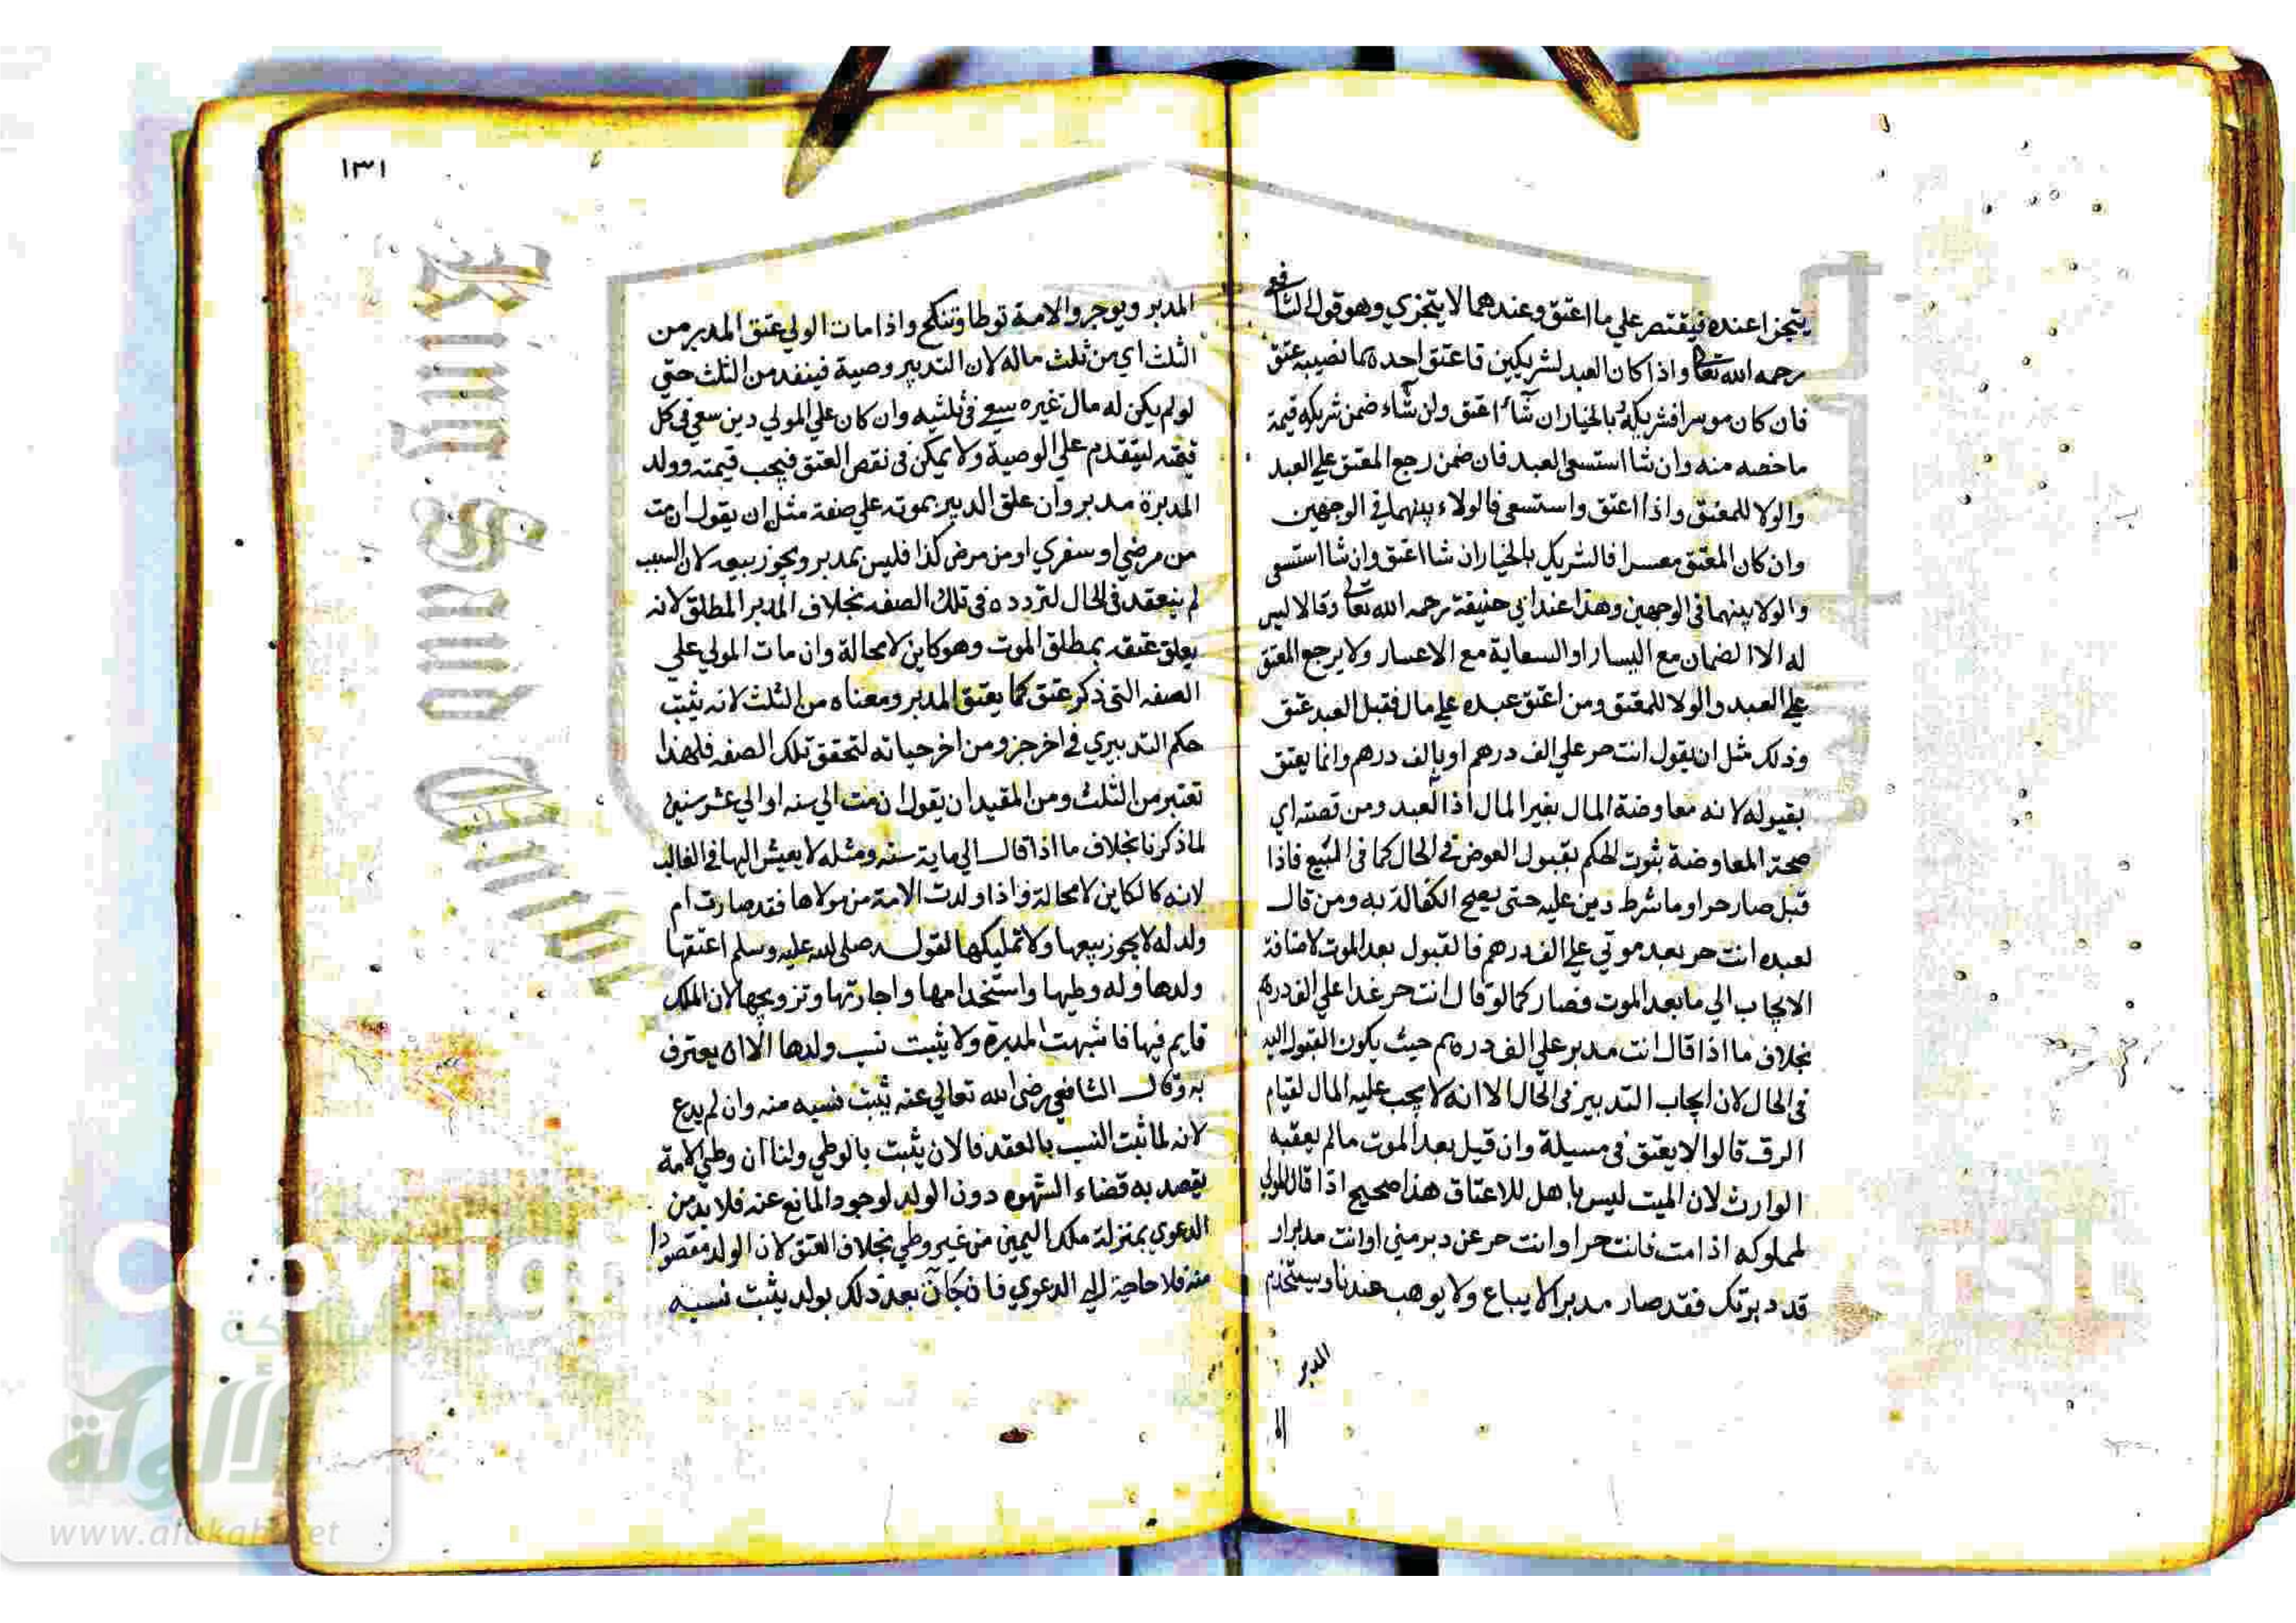 يتجزا عنده فيقتصر علي ما اعتق وعندهما لا يتجزي وهو قول الشافعي
رحمه الله تعالى واذا كان العبد لشريكين فاعتق احدهما نصيبه عتق
فان كان موسرا فشريكه بالخيار ان شاء اعتق وان شاء ضمن شريكه قيمة
ما خصه منه وان شا استسعى العبد فان ضمن رجع المعتق علي العبد
والولا للمعتق واذا اعتق واستسعى فالولاء بينهما في الوجهين
وان كان المعتق معسرا فالشريك بالخيار ان شا اعتق وان شا استسعى
والولا بينهما في الوجهين وهذا عند ابي حنيفة رحمه الله تعالى وقالا ليس
له الا الضمان مع اليسار او السعاية مع الاعسار ولا يرجع المعتق
علي العبد والولا للمعتق ومن اعتق عبده علي مال فقبل العبد عتق
وذلك مثل ان يقول انت حر علي الف درهم او بالف درهم وانما يعتق
بقبوله لانه معاوضة المال بغير المال اذا العبد ومن قصته اي
صحة المعاوضة بثوت الحكم بقبول العوض في الحال كما في البيع فاذا
قبل صار حرا وما شرط دين عليه حتى يصح الكفالة به ومن قال
لعبده انت حر بعد موتي علي الف درهم فالقبول بعد الموت لاضافة
الايجاب الي ما بعد الموت فصار كما لو قال انت حر غدا علي الف درهم
بخلاف ما اذا قال انت مدبر علي الف درهم حيث يكون القبول اليه
في الحال لان ايجاب التدبير في الحال الا انه لا يجب عليه المال لقيام
الرق قالوا لا يعتق في مسيلة وان قيل بعد الموت مالم يعقبه
الوارث لان الميت ليس باهل للاعتاق هذا صحيح اذا قال المولي
لمملوكه اذا مت فانت حر او انت حر عن دبر مني او انت مدبر او
قد دبرتك فقد صار مدبرا لا يباع ولا يوهب عندنا ويستخدم
المدبر
١٣١
المدبر ويوجر والامة توطا وتنكح واذا مات الولي عتق المدبر من
الثلث اي من ثلث ماله لان التدبير وصية فينفد من الثلث حتي
لو لم يكن له مال غيره سعي في ثلثيه وان كان علي المولي دين سعي في كل
قيمته لتقدم علي الوصية ولا يمكن في نقص العتق فيجب قيمته وولد
المدبرة مدبر وان علق الدبير بموته علي صفة مثل ان يقول ان مت
من مرضي او سفري او من مرض كذا فليس بمدبر ويجوز بيعه لان السبب
لم ينعقد في الحال لتردده في تلك الصفه بخلاف المدبر المطلق لانه
يعلق عتقه بمطلق الموت وهو كاين لا محالة وان مات المولي علي
الصفه التي ذكر عتق كما يعتق المدبر ومعناه من الثلث لانه يثبت
حكم التدبيري في اخر جزو من اخر حياته لتحقق تلك الصفه فلهذا
تعتبر من الثلث ومن المقيد ان يقول ان مت الي سنه او الي عشر سنين
لما ذكرنا بخلاف ما اذا قال الي ماية سنه ومثله لا يعيش اليها في الغالب
لانه كالكاين لا محالة واذا ولدت الامة من مولاها فقد صارت ام
ولد له لا يجوز بيعها ولا تمليكها لقوله صلى الله عليه وسلم اعتقها
ولدها وله وطيها واستخدامها واجارتها وتزويجها لان الملك
قايم فيها فاشبهت المدبرة ولا يثبت نسب ولدها الا ان يعترف
به وقال الشافعي رضي الله تعالي عنه يثبت نسبه منه وان لم يدع
لانه لما ثبت النسب بالعقد فالان يثبت بالوطي ولنا ان وطي الامة
يقصد به قضاء الشهوه دون الولد لوجود المانع عنه فلا بد من
الدعوي بمنزلة ملك اليمين من غير وطي بخلاف العتق لان الولد مقصودا
منه فلا حاجة الي الدعوي فان كان بعد ذلك بولد يثبت نسبه
Copyright
King Saud University
شبكة
الألوكة
www.alukah.net